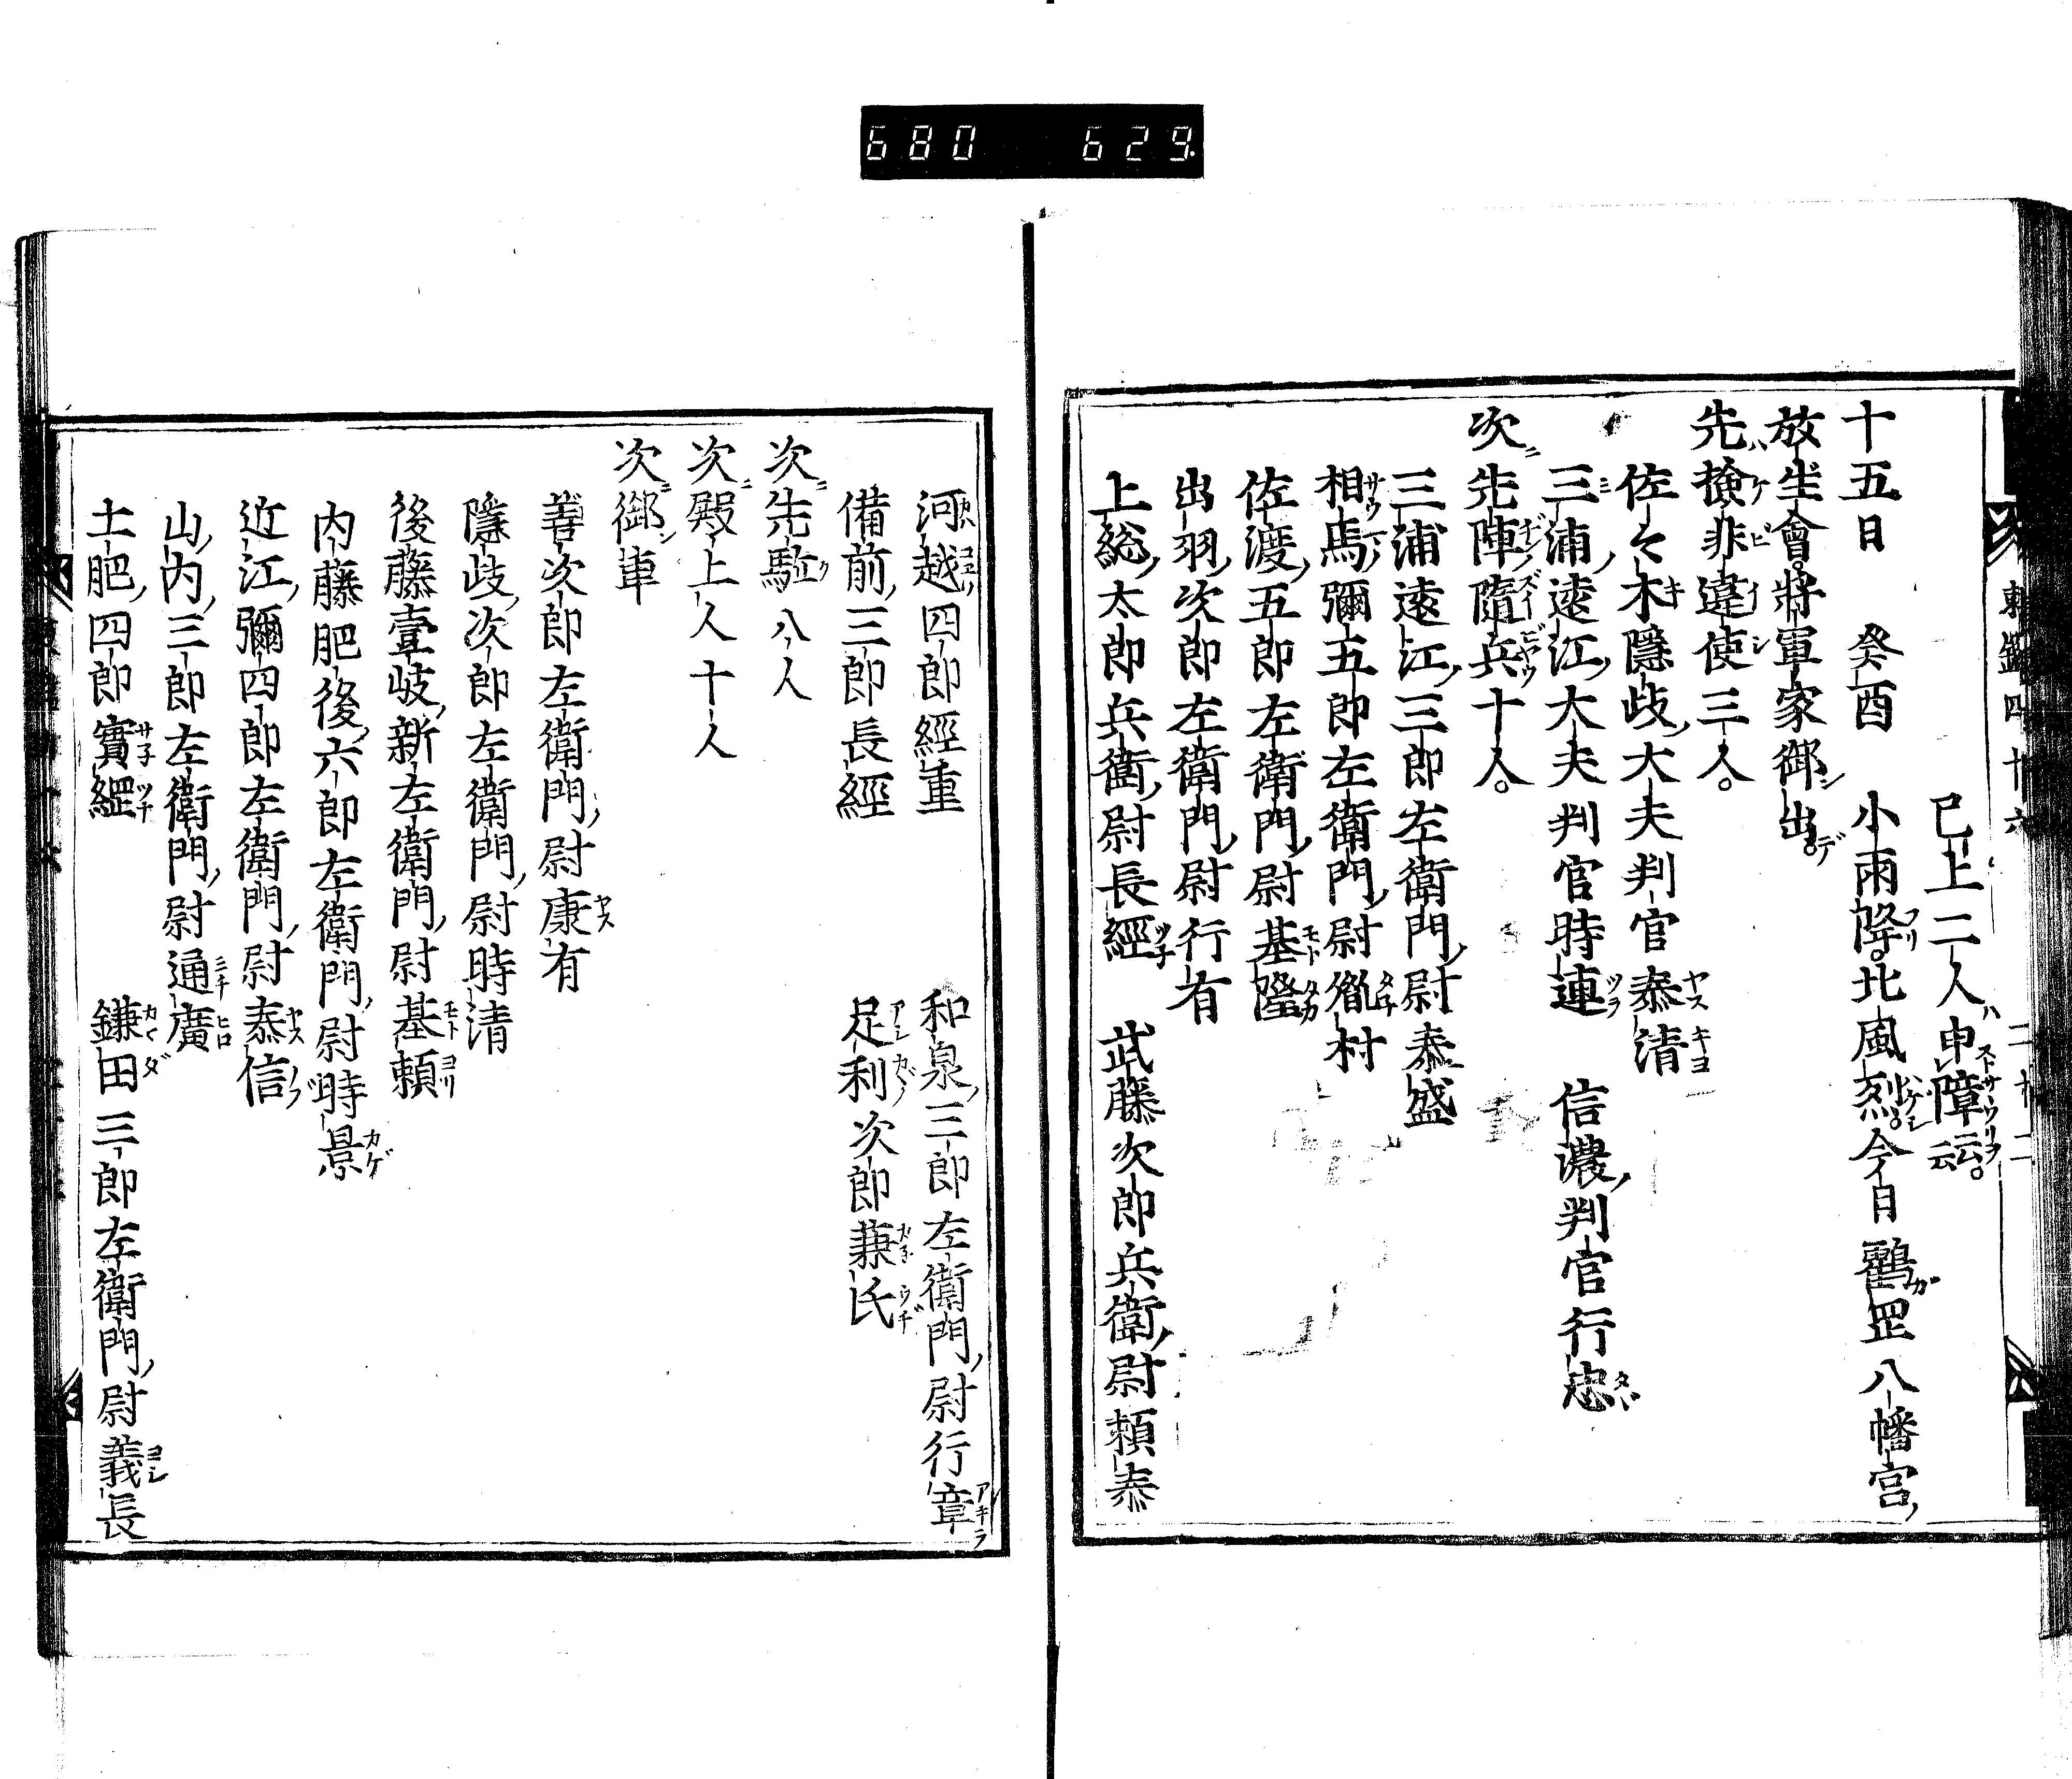 680 629
已上二人申障云云
十五日 癸酉 小雨降北風烈今日鶴罡八幡宮
放生會將軍家御出
先撿非違使三人
佐々木隱岐大夫判官泰清
三浦遠江大夫判官時連 信濃判官行忠
次先陣隨兵十人
三浦遠江三郎左衛門尉泰盛
相馬彌五郎左衛門尉胤村
佐渡五郎左衛門尉基隆
出羽次郎左衛門尉行有
上総太郎兵衛尉長經 武藤次郎兵衛尉頼泰
河越四郎經重 和泉三郎左衛門尉行章
備前三郎長經 足利次郎兼氏
次先駈八人
次殿上人十人
次御車
善次郎左衛門尉康有
隱岐次郎左衛門尉時清
後藤壹岐新左衛門尉基頼
内藤肥後六郎左衛門尉時景
近江彌四郎左衛門尉泰信
山内三郎左衛門尉通廣
土肥四郎實綱 鎌田三郎左衛門尉義長